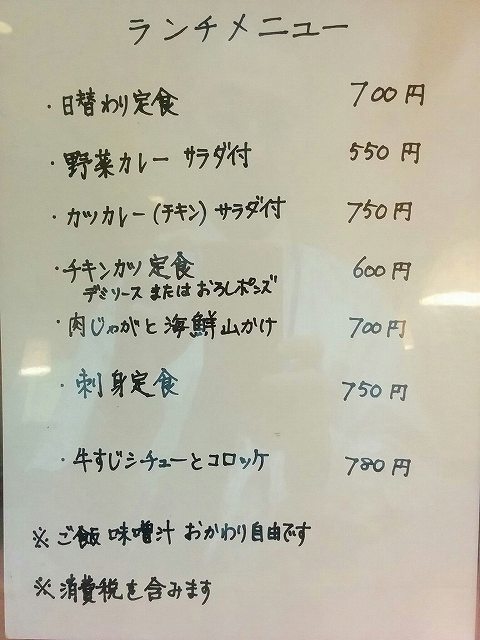 ランチメニュー
・日替わり定食 700円
・野菜カレー サラダ付 550円
・カツカレー(チキン)サラダ付 750円
・チキンカツ定食 600円
デミソースまたはおろしポンズ
・肉じゃがと海鮮山かけ 700円
・刺身定食 750円
・牛すじシチューとコロッケ 780円
※ご飯 味噌汁 おかわり自由です
※消費税を含みます